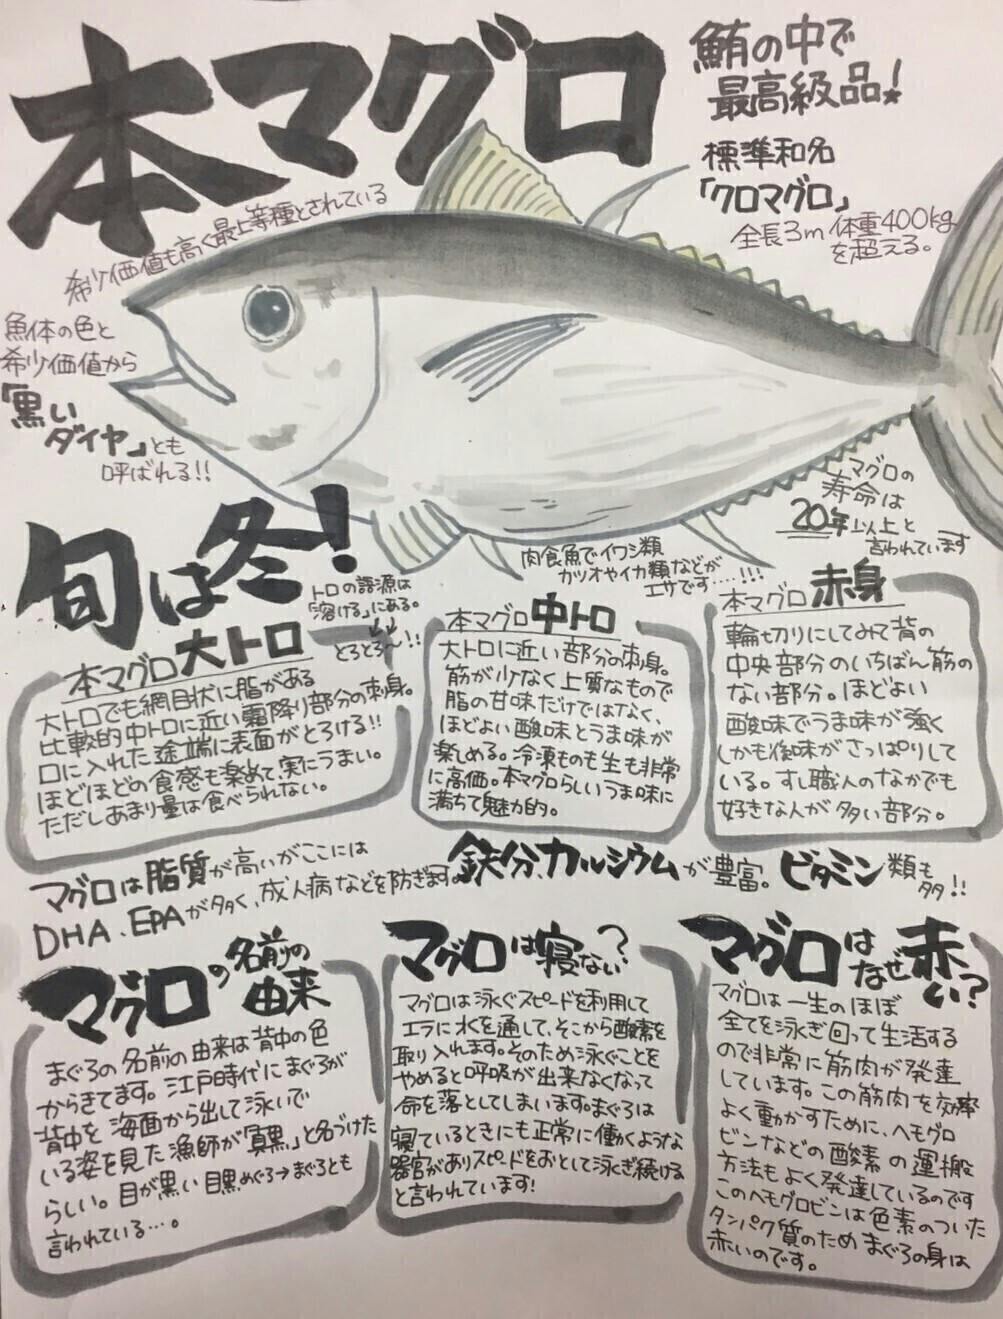 本マグロ
鮪の中で
最高級品!
標準和名
「クロマグロ」
全長3m 体重400kg
を超える。
希少価値も高く最上等種とされている
魚体の色と
希少価値から
「黒い
ダイヤ」とも
呼ばれる!!
マグロの
寿命は
20年以上と
言われています
肉食魚でイワシ類
カツオやイカ類などが
エサです…!!!
旬は冬!
トロの語源は
「溶ける」にある。
↓↓
とろとろ〜!!
本マグロ大トロ
大トロでも網目状に脂がある
比較的中トロに近い霜降り部分の刺身。
口に入れた途端に表面がとろける!!
ほどほどの食感も楽めて、実にうまい。
ただしあまり量は食べられない。
本マグロ中トロ
大トロに近い部分の刺身。
筋が少なく上質なもので
脂の甘味だけではなく、
ほどよい酸味とうま味が
楽しめる。冷凍ものも生も非常
に高価。本マグロらしいうま味に
満ちて魅力的。
本マグロ赤身
輪切りにしてみて背の
中央部分のいちばん筋の
ない部分。ほどよい
酸味でうま味が強く
しかも後味がさっぱりして
いる。すし職人のなかでも
好きな人が多い部分。
マグロは脂質が高いがここには
DHA、EPAが多く、成人病などを防ぎます。
鉄分、カルシウムが豊富。ビタミン類も
多!!
マグロの名前の
由来
まぐろの名前の由来は背中の色
からきてます。江戸時代にまぐろが
背中を海面から出して泳いで
いる姿を見た漁師が「真黒」と名づけた
らしい。目が黒い目黒めぐろ→まぐろとも
言われている…。
マグロは寝ない?
マグロは泳ぐスピードを利用して
エラに水を通して、そこから酸素を
取り入れます。そのため泳ぐことを
やめると呼吸が出来なくなって
命を落としてしまいます。まぐろは
寝ているときにも正常に働くような
器官がありスピードをおとして泳ぎ続ける
と言われています!
マグロはなぜ赤い?
マグロは一生のほぼ
全てを泳ぎ回って生活する
ので非常に筋肉が発達
しています。この筋肉を効率
よく動かすために、ヘモグロ
ビンなどの酸素の運搬
方法もよく発達しているのです
このヘモグロビンは色素のついた
タンパク質のためまぐろの身は
赤いのです。